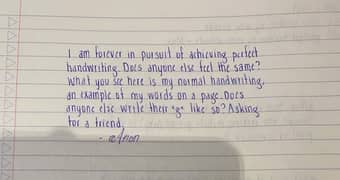 I am forever in pursuit of achieving perfect
handwriting. Does anyone else feel the same?
What you see here is my normal handwriting,
an example of my words on a page. Does
anyone else write their "g" like so? Asking
for a friend.